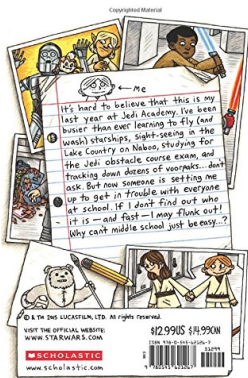 Copyrighted Material
me
It's hard to believe that this is my
last year at Jedi Academy. I've been
busier than ever learning to fly (and
wash) starships, sight-seeing in the
Lake Country on Naboo, studying for
the Jedi obstacle course exam, and
tracking down dozens of voorpaks...don't
ask. But now someone is setting me
up to get in trouble with everyone
at school. If I don't find out who
it is — and fast — I may flunk out!
Why can't middle school just be easy...?
© & TM 2015 LUCASFILM, LTD. All rights reserved.
VISIT THE OFFICIAL WEBSITE:
WWW.STARWARS.COM
SCHOLASTIC
www.scholastic.com
$12.99US $14.99CAN
ISBN 978-0-545-62126-7
51299
9 780545 621267